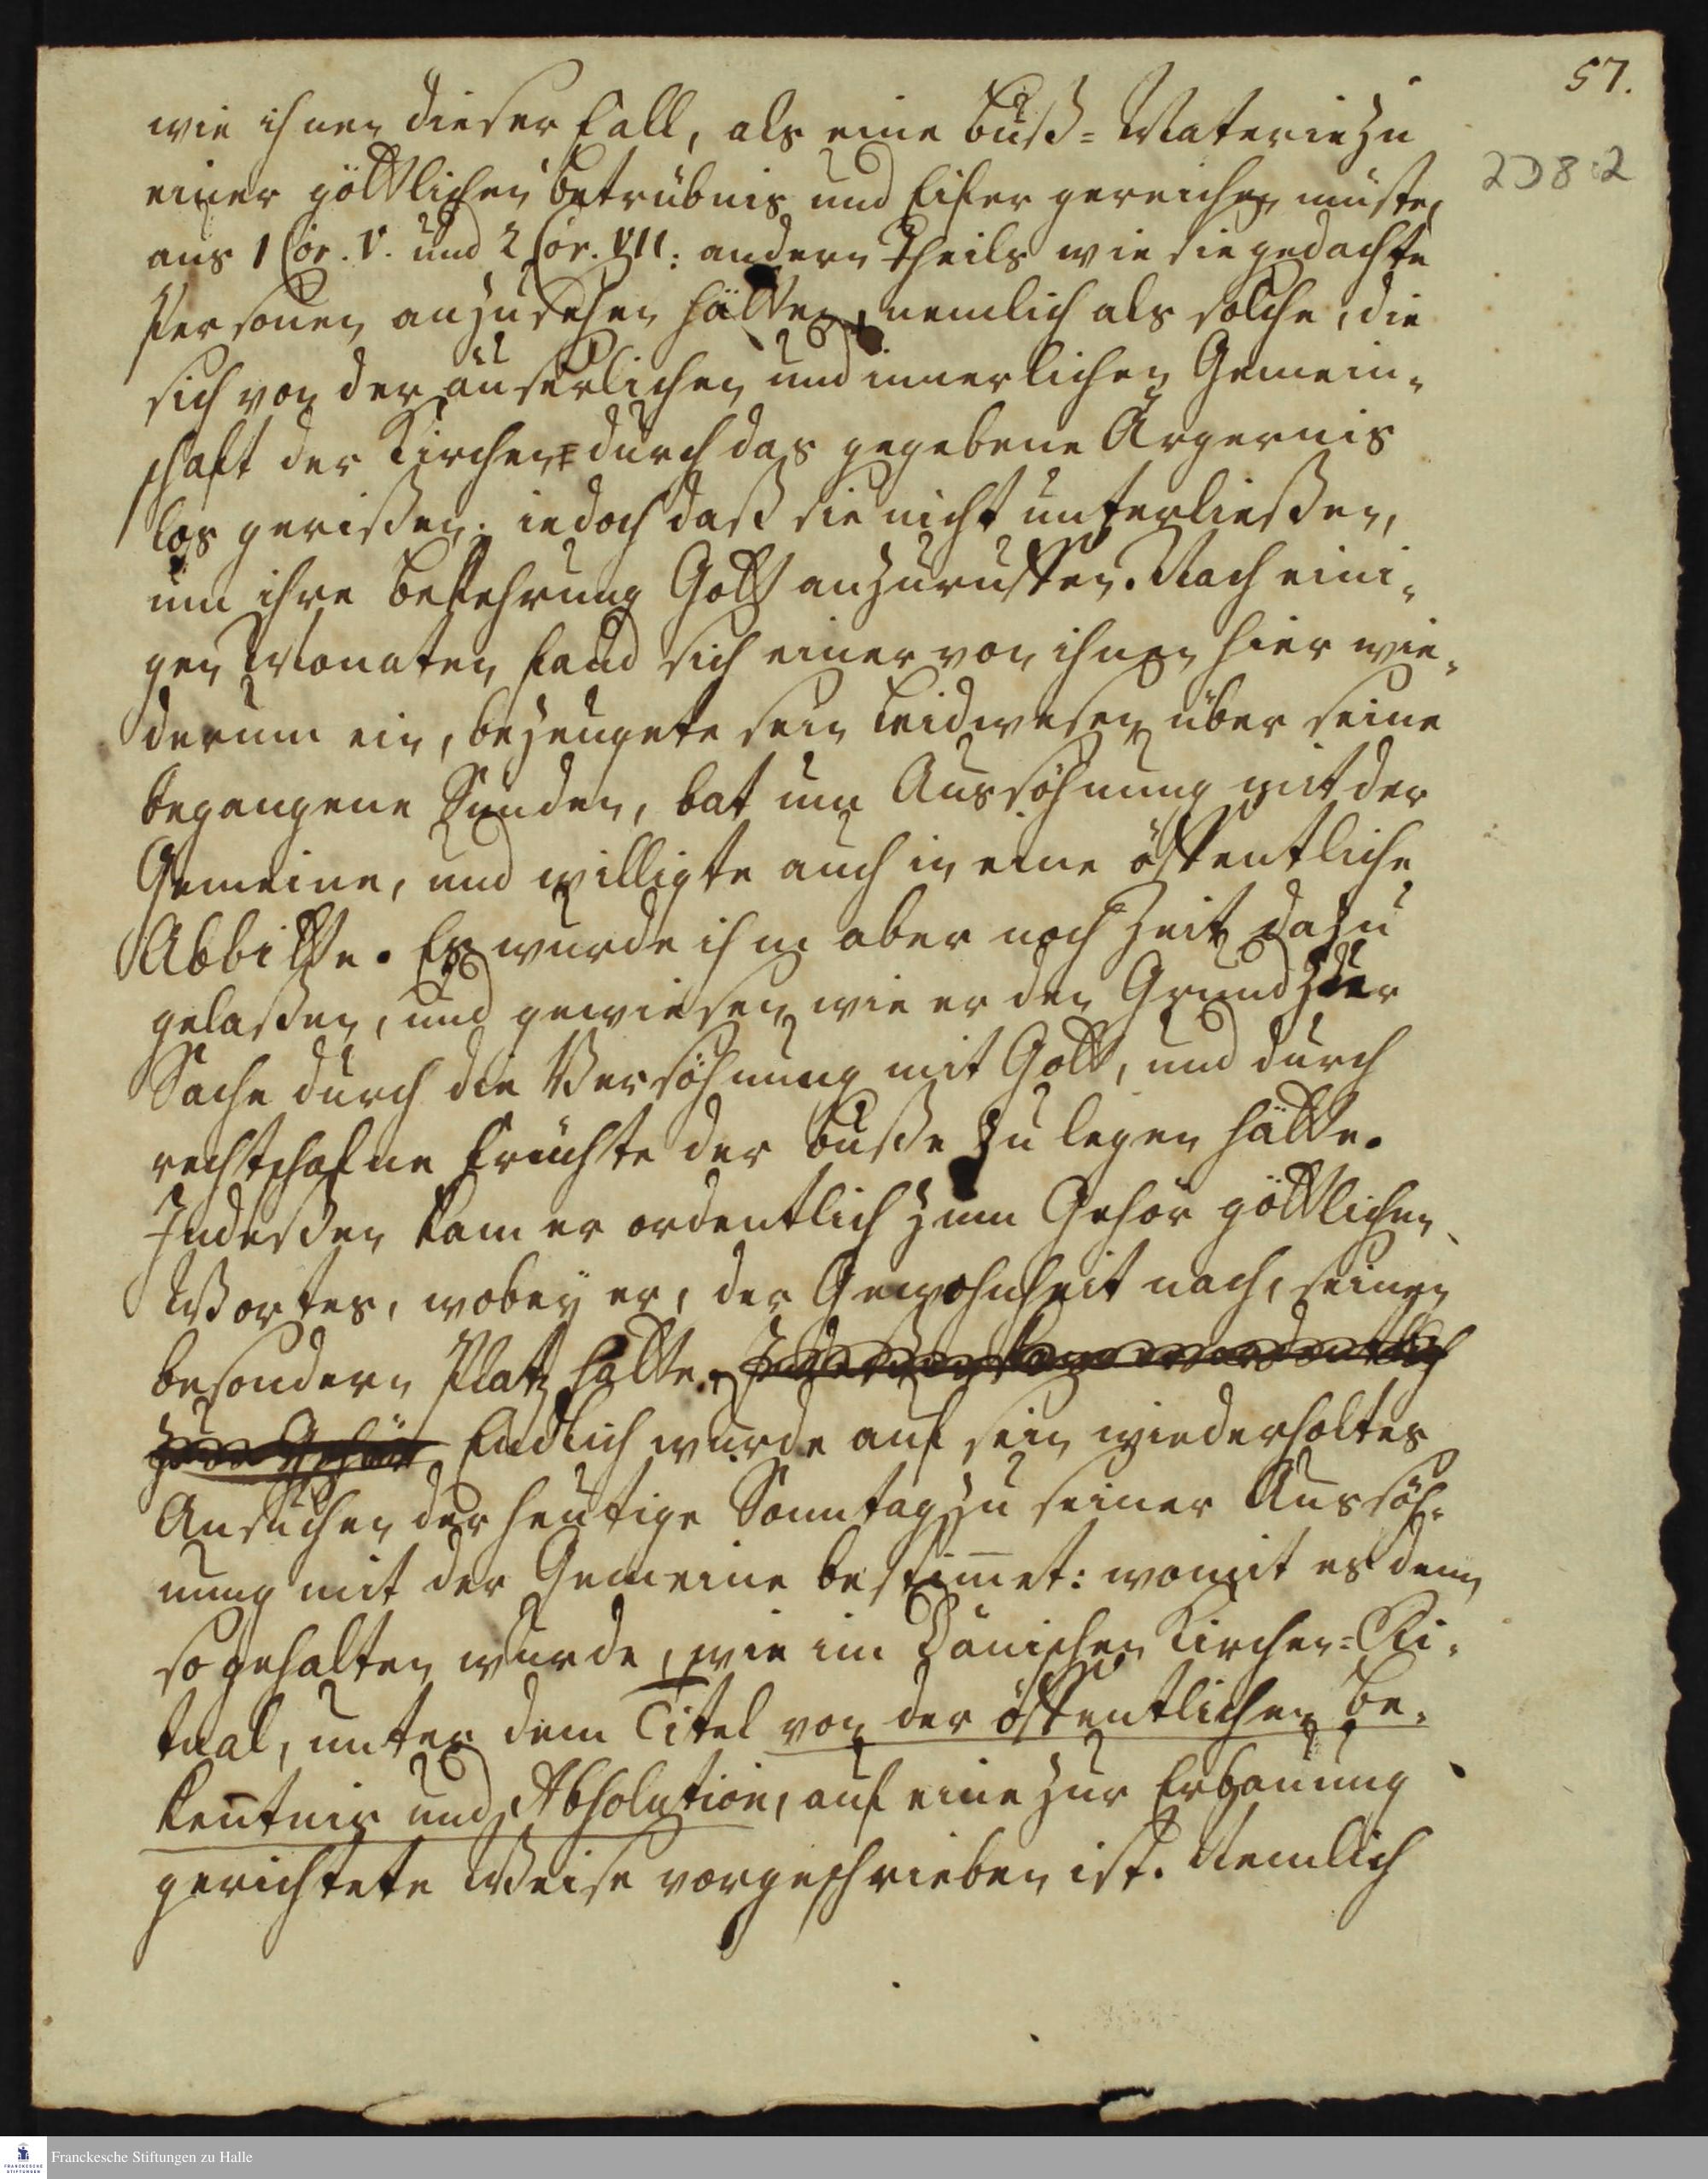 57.
2D8:2
wie ihnen dieser Fall, als eine Buß-Materie zu
einer göttlichen Betrübnis und Eifer gereichen müste,
aus 1 Cor. V. und 2 Cor. VII: andern Theils wie sie gedachte
Personen anzusehen hätten, nemlich als solche, die
sich von der äuserlichen und innerlichen Gemein-
schaft der Kirchen durch das gegebene Ärgernis
los gerißen; iedoch daß sie nicht unterließen,
um ihre Bekehrung Gott anzuruffen. Nach eini-
gen Monaten fand sich einer von ihnen hier wie-
derum ein, bezeugete sein Leidwesen über seine
begangene Sünden, bat um Aussöhnung mit der
Gemeine, und willigte auch in eine öffentliche
Abbitte. Es wurde ihm aber noch Zeit dazu
gelaßen, und gewiesen wie er den Grund der
Sache durch die Versöhnung mit Gott, und durch
rechtschafne Früchte der Buße zu legen hätte.
Indeßen kam er ordentlich zum Gehör göttlichen
Wortes, wobey er, der Gewohnheit nach, seinen
besondern Platz hatte. Indeßen kam er ordentlich
zum Gehör Endlich wurde auf sein wiederholtes
Ansuchen der heutige Sonntag zu seiner Aussöh-
nung mit der Gemeine bestim̅et: womit es denn
so gehalten wurde, wie im Dänischen Kirchen-Ri-
tual, unter dem Titel von der öffentlichen Be-
ken̅tnis und Absolution, auf eine zur Erbauung
gerichtete Weise vorgeschrieben ist. Nemlich
Franckesche Stiftungen zu Halle
FRANCKESCHE STIFTUNGEN